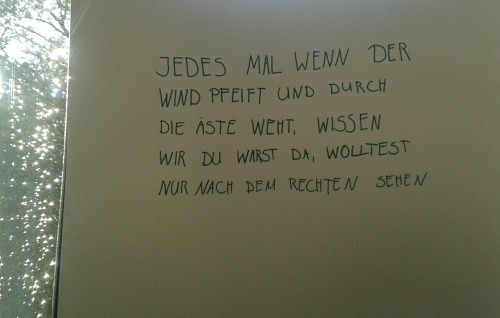 JEDES MAL WENN DER
WIND PFEIFT UND DURCH
DIE ÄSTE WEHT, WISSEN
WIR DU WARST DA, WOLLTEST
NUR NACH DEM RECHTEN SEHEN